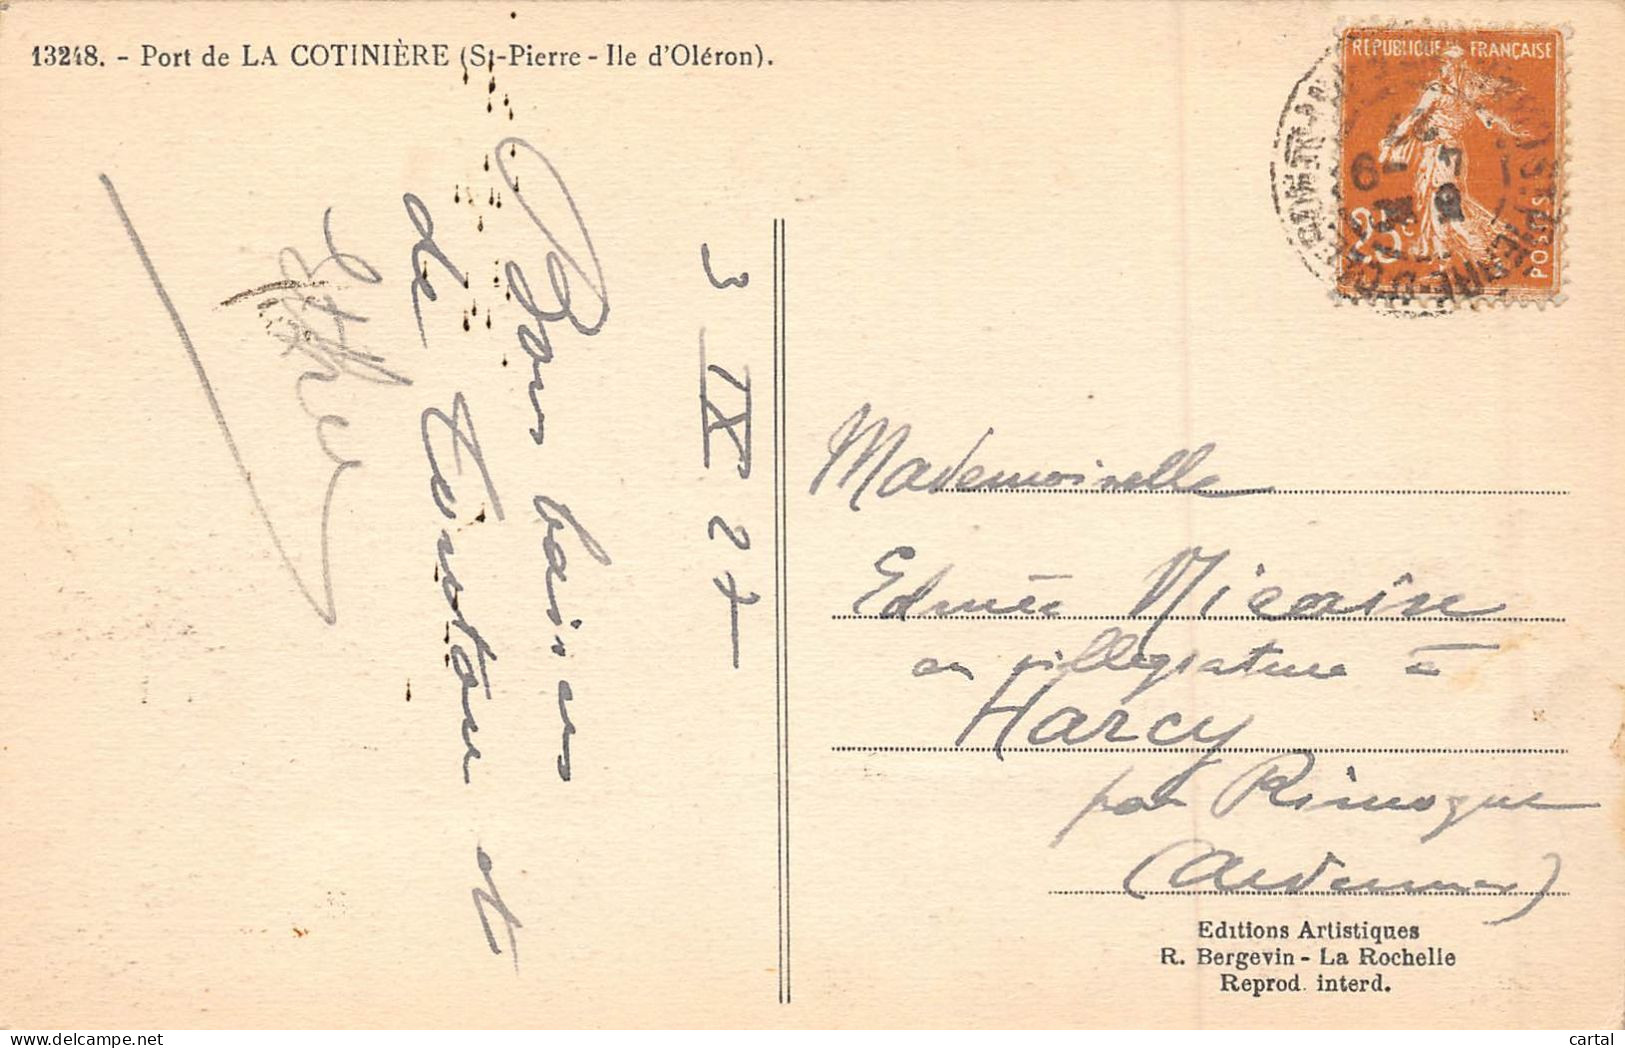 13248. - Port de LA COTINIÈRE (St-Pierre - Ile d'Oléron).
REPUBLIQUE FRANÇAISE
25c
POSTES
3 IX 27
Bons baisers
de tonton et
Mademoiselle
Edmée Nicaise
en villégiature à
Harcy
par Rimogne
(Ardennes)
Editions Artistiques
R. Bergevin - La Rochelle
Reprod. interd.
cartal